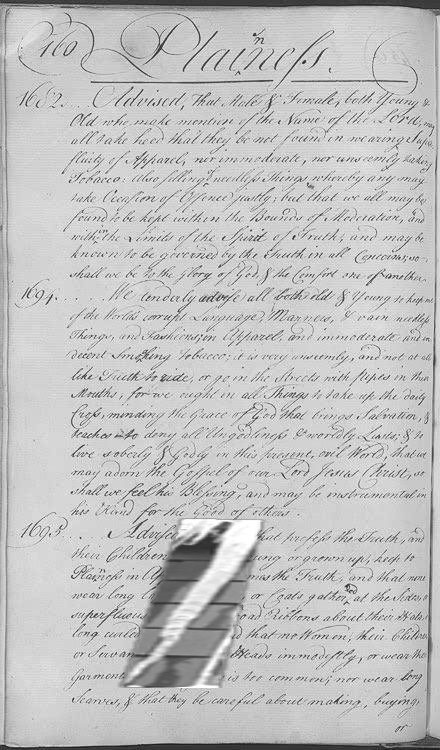 160 Plainness.
1682... Advised, That Male & Female, both Young &
Old who make mention of the Name of the Lord, may
all take heed that they be not found in wearing Super
fluity of Apparel, nor immoderate, nor unseemly taking
Tobacco: Also selling needless Things whereby any may
take Occasion of Offence justly; but that we all may be
found to be kept within the Bounds of Moderation, and
within the Limits of the Spirit of Truth; and may be
known to be governed by the Truth in all Concerns, so
shall we be to the Glory of God, & the Comfort one of another.
1694..... We tenderly advise all both old & Young to keep out
of the World's corrupt Language, Manners, & vain needless
Things, and Fashions, in Apparel, and immoderate and in
decent Smoking Tobacco; it is very unseemly, and not at all
like Truth to ride, or go in the Streets with pipes in their
Mouths, for we ought in all Things to take up the daily
Cross, minding the Grace of God that brings Salvation, &
teaches to deny all Ungodliness & worldly Lusts, & to
live soberly & Godly in this present, evil World, that we
may adorn the Gospel of our Lord Jesus Christ, so
shall we feel his Blessing, and may be instrumental in
his Hand for the Good of others.
1695... Advised that profess the Truth, and
their Children or grown up, keep to
Plainness in the Truth, and that none
wear long or Coats gather'd at the Sides, or
superfluous Ribbons about their Hats, or
long curled and that no Women, their Children
or Servants Heads immodestly, or wear their
Garments is too common; nor wear long
Scarves, & that they be careful about making, buying,
or